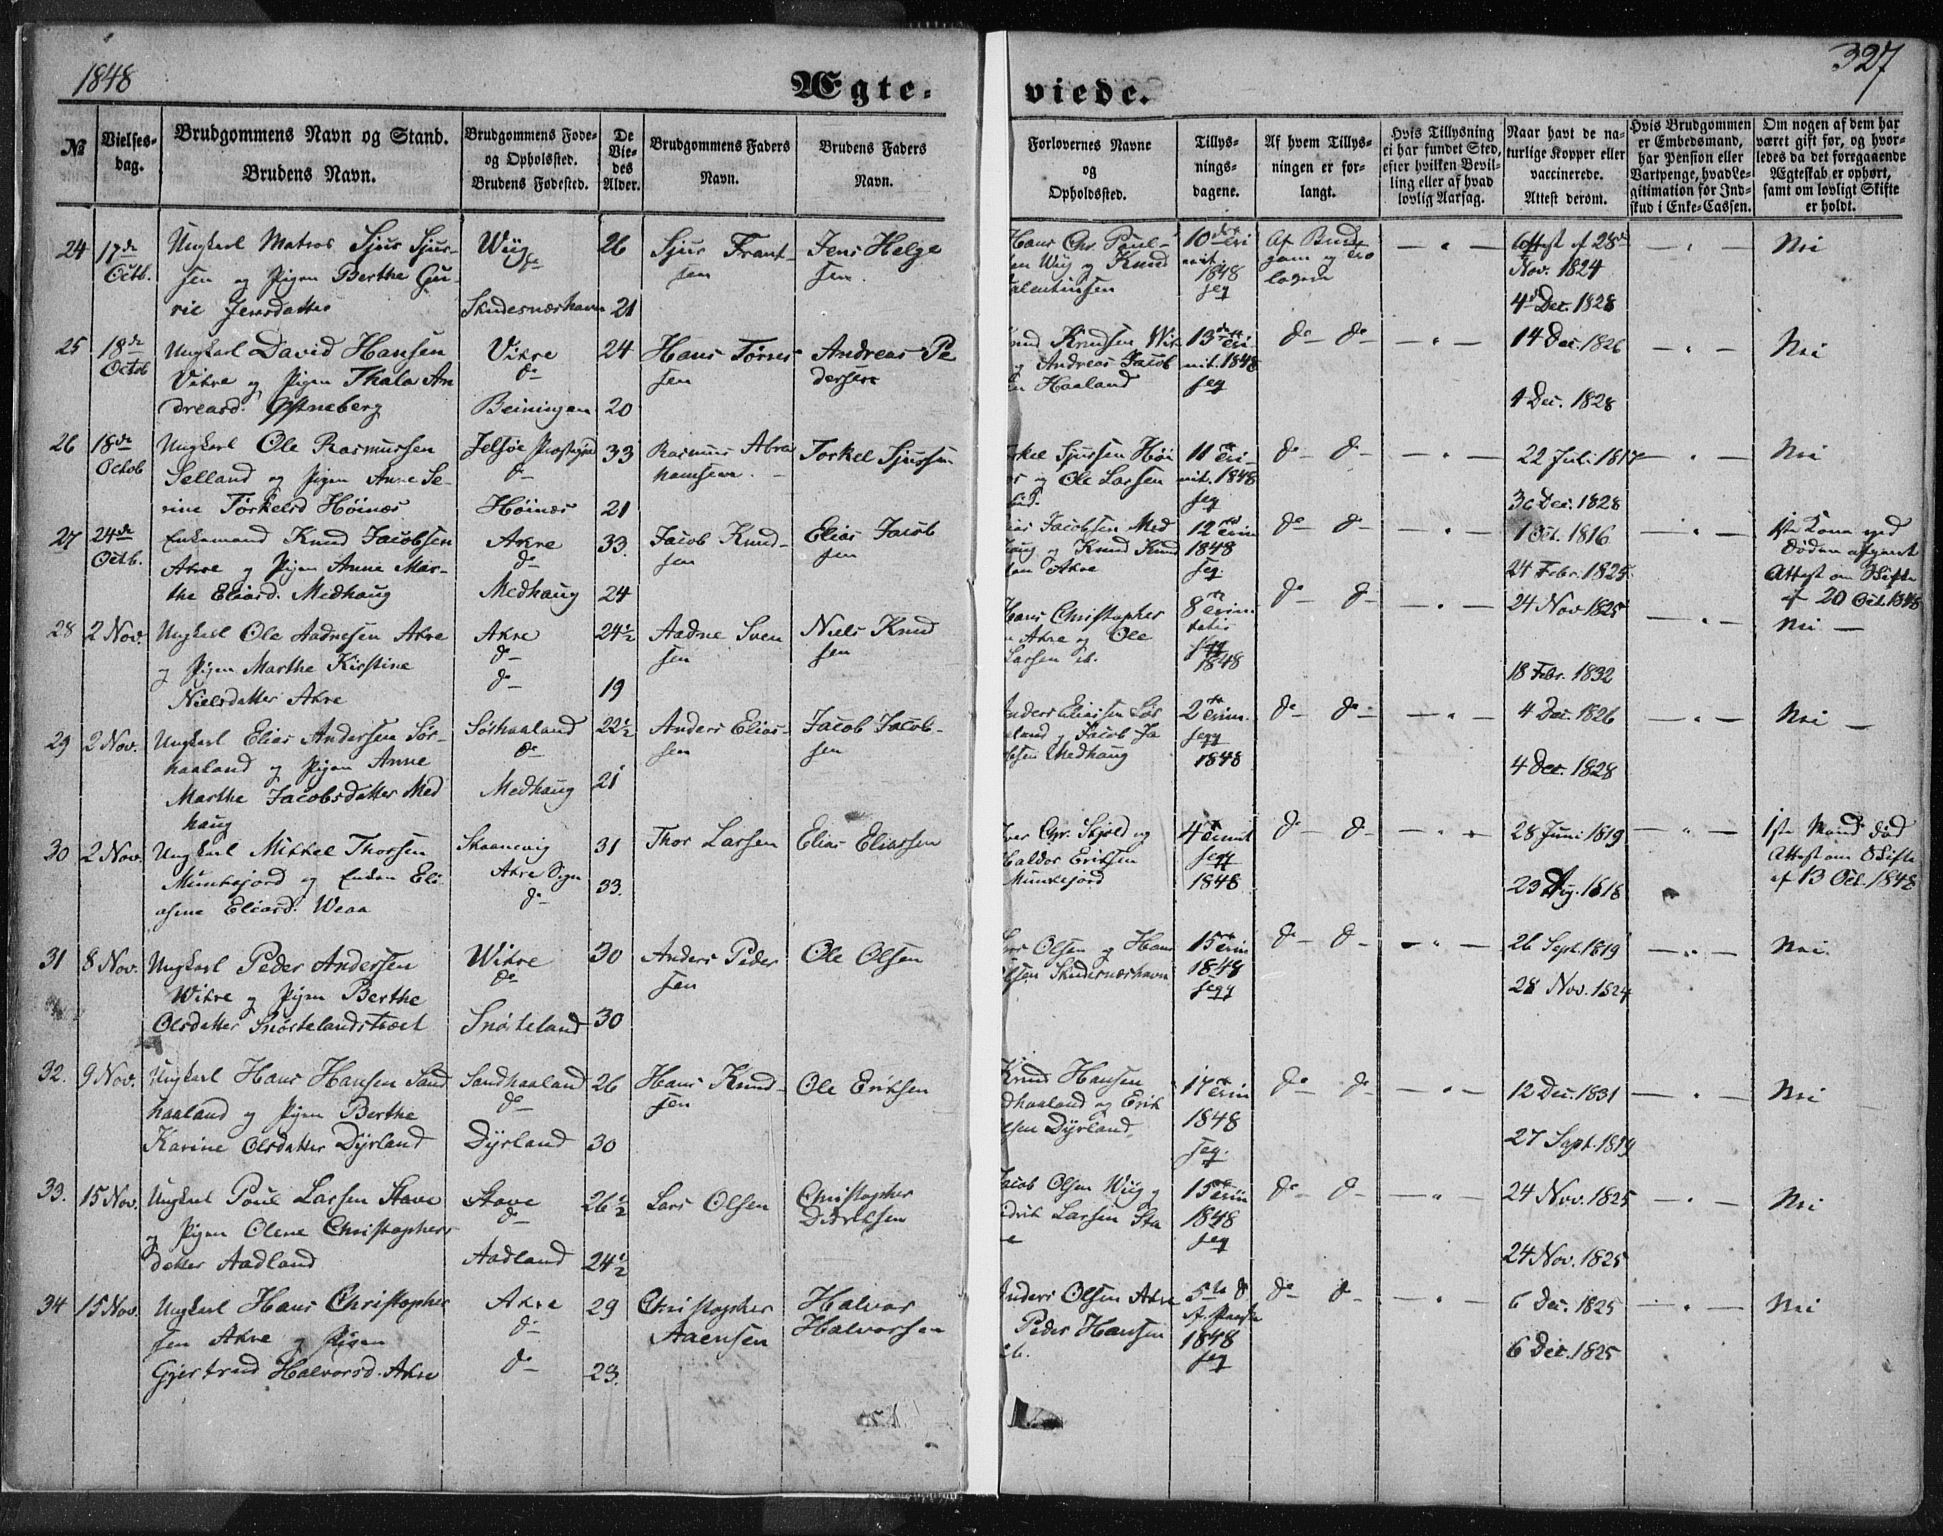 1848
327
Ægte-
viede.
№
Vielses-
dag.
Brudgommens Navn og Stand.
Brudens Navn.
Brudgommens Føde-
og Opholssted.
Brudens Fødested.
De
Vie-
des
Alder.
Brudgommens Faders
Navn.
Brudens Faders
Navn.
Forlovernes Navne
og
Opholdssted.
Tillys-
nings-
dagene.
Af hvem Tillys-
ningen er for-
langt.
Hvis Tillysning
ei har fundet Sted,
efter hvilken Bevil-
ling eller af hvad
lovlig Aarsag.
Naar havt de na-
turlige Kopper eller
vaccinerede.
Attest derom.
Hvis Brudgommen
er Embedsmand,
har Pension eller
Vartpenge, hvad Le-
gitimation for Ind-
skud i Enke-Cassen.
Om nogen af dem har
været gift før, og hvor-
ledes da det foregaaende
Ægteskab er ophørt,
samt om lovligt Skifte
er holdt.
24 17de Octb.
Ungkarl Matros Sjur Sjur-
sen og Pigen Berthe Gu-
rie Jensdatter
Wiig
do
Skudesnæshavn
26
21
Sjur Frant-
sen
Jens Helge
sen.
Hans Chr. Poul-
sen Wiig og Knud
Valentinsen
10de Tri
nit.
1848
seq
Af Brud
gom og For
lover
Attest af 28de
Nov. 1824
4de Dec. 1828
Nei
25 18de Octob
Ungkarl David Hansen
Vikre og Pigen Thala An
dreasd. Østneberg
Vikre
do
Beiningen
24
20
Hans Tørres
sen
Andreas Pe
dersen
Knudsen Wik
og Andreas Jacob
sen Haaland
13de Tri-
nit. 1848
seq
do do
14 Dec. 1826
4 Dec. 1828
Nei
26 18de Octob
Ungkarl Ole Rasmussen
Selland og Pigen Anne Se-
rine Torkelsd Høinæs
Jelsøe Præstegjd
do
Høinæs
33
21
Rasmus Abra
hamsen
Torkel Sjursen
Torkel Sjursen Høi
næs og Ole Larsen
11 Tri-
nit. 1848
seq
do do
22 Juli 1817
30 Dec. 1828
Nei
27 24de Octb.
Enkemand Knud Jacobsen
Akre og Pigen Anne Mar-
the Eliasd. Medhaug
Akre
do
Medhaug
33.
24
Jacob Knud-
sen
Elias Jacob
sen
Elias Jacobsen Med
haug og Knud Knud
sen Akre
12 Trin
1848
seq.
do do
1 Oct. 1816
24 Febr. 1825.
1ste Kone ved
Døden afgaaet
Attest om Skifte
af 20 Oct. 1848
28 2 Nov.
Ungkarl Ole Aadnesen Akre
og Pigen Marthe Kirstine
Nielsdatter Akre
Akre
do
do
24½
19
Aadne Sven
sen
Niels Knud
sen
Hans Christopher
sen Akre og Ole
Larsen ib.
8 Trini
tatis
seqq
1848
do do
24 Nov 1825
18 Febr. 1832
Nei
29 2 Nov.
Ungkarl Elias Andersen Sør-
haaland og Pigen Anne
Marthe Jacobsdatter Med
haug
Sørhaaland
do
Medhaug
22½
21
Anders Elias-
sen
Jacob Jacob-
sen
Anders Eliassen Sør
haaland og Jacob Ja
cobsen Medhaug
2 Trin.
seqq
1848
do do
4 Dec. 1826
4 Dec. 1828
Nei
30 2 Nov.
Ungkarl Mikkel Thorsen
Munkejord og Enken Eli
asine Eliasd. Weaa
Skaanevig
Akre Sogn
do
31
33.
Thor Larsen
Elias Eliassen
Chr. Skjold og
Haldor Eriksen
Munkejord
4 Trinit
seqq
1848
do do
28 Juni 1819
23 Aug. 1818
1ste Mand død
Attest om Skifte
af 13 Oct. 1848
31 8 Nov.
Ungkarl Peder Andersen
Wikre og Pigen Berthe
Olsdatter Snørtelandstræet
Wikre
do
Snørteland
30
30
Anders Peder
sen
Ole Olsen
Lars Olsen og Hans
Olsen Skudesnæshavn
15 Trin
1848
seqq
do do
26 Sept. 1819
28 Nov. 1824
Nei.
32. 9 Nov.
Ungkarl Hans Hansen Sand
haaland og Pigen Berthe
Karine Olsdatter Dyrland
Sandhaaland
do
Dyrland
26
30
Hans Knud-
sen
Ole Eriksen
Knud Hansen
Sandhaaland og Erik
Olsen Dyrland,
17 Trin
1848
seq.
do do
12 Dec. 1831
27 Sept. 1819
Nei
33. 15 Nov.
Ungkarl Poul Larsen Stave
og Pigen Olene Christophers
datter Aadland
Stave
do
Aadland
26½
24½
Lars Olsen
Christopher
Didriksen
Jacob Olsen Wiig og
Didrik Larsen Sta
ve
15 Trin
1848
seq
do do
24 Nov. 1825
24 Nov. 1825
Nei
34 15 Nov.
Ungkarl Hans Christopher
sen Akre og Pigen
Gjertrud Halvorsd. Akre
Akre
do
do
29
23.
Christopher
Aaensen
Halvor
Halvorsen
Anders Olsen Akre
Peder Hansen
ib.
5te S
af Paaske
1848
seq
do do
6 Dec. 1825
6 Dec. 1825
Nei